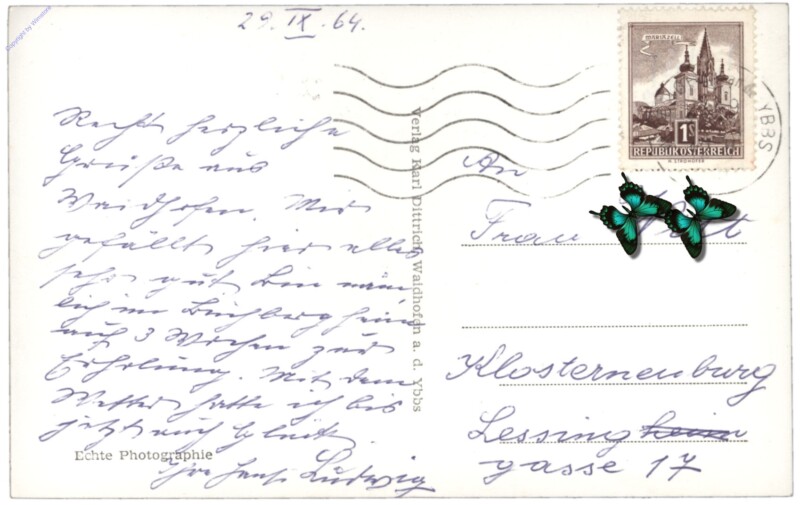 Copyright by
29. IX. 64.
Recht herzliche
Grüße aus
Waidhofen. Mir
gefällt hier alles
sehr gut. Bin näm
lich im Buchbergheim
auf 3 Wochen zur
Erholung. Mit dem
Wetter hatte ich bis
jetzt auch Glück.
Ihr Ludwig
Echte Photographie
Verlag Karl Dittrich, Waidhofen a. d. Ybbs
MARIAZELL
1S
REPUBLIK ÖSTERREICH
H. STROHOFER
YBBS
An
Frau
Klosterneuburg
Lessing
gasse 17